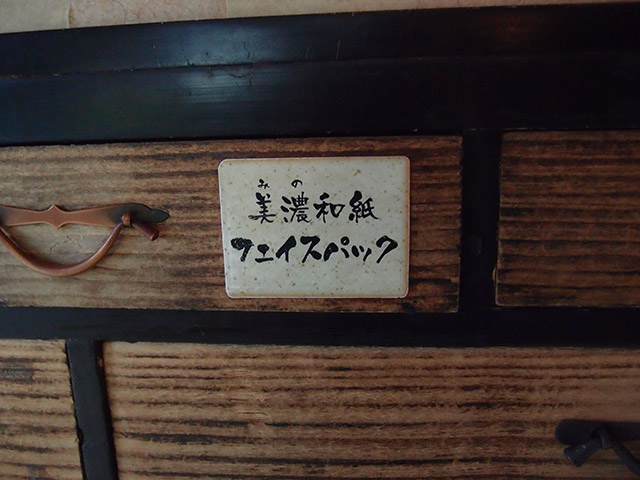 みの
美濃和紙
フェイスパック